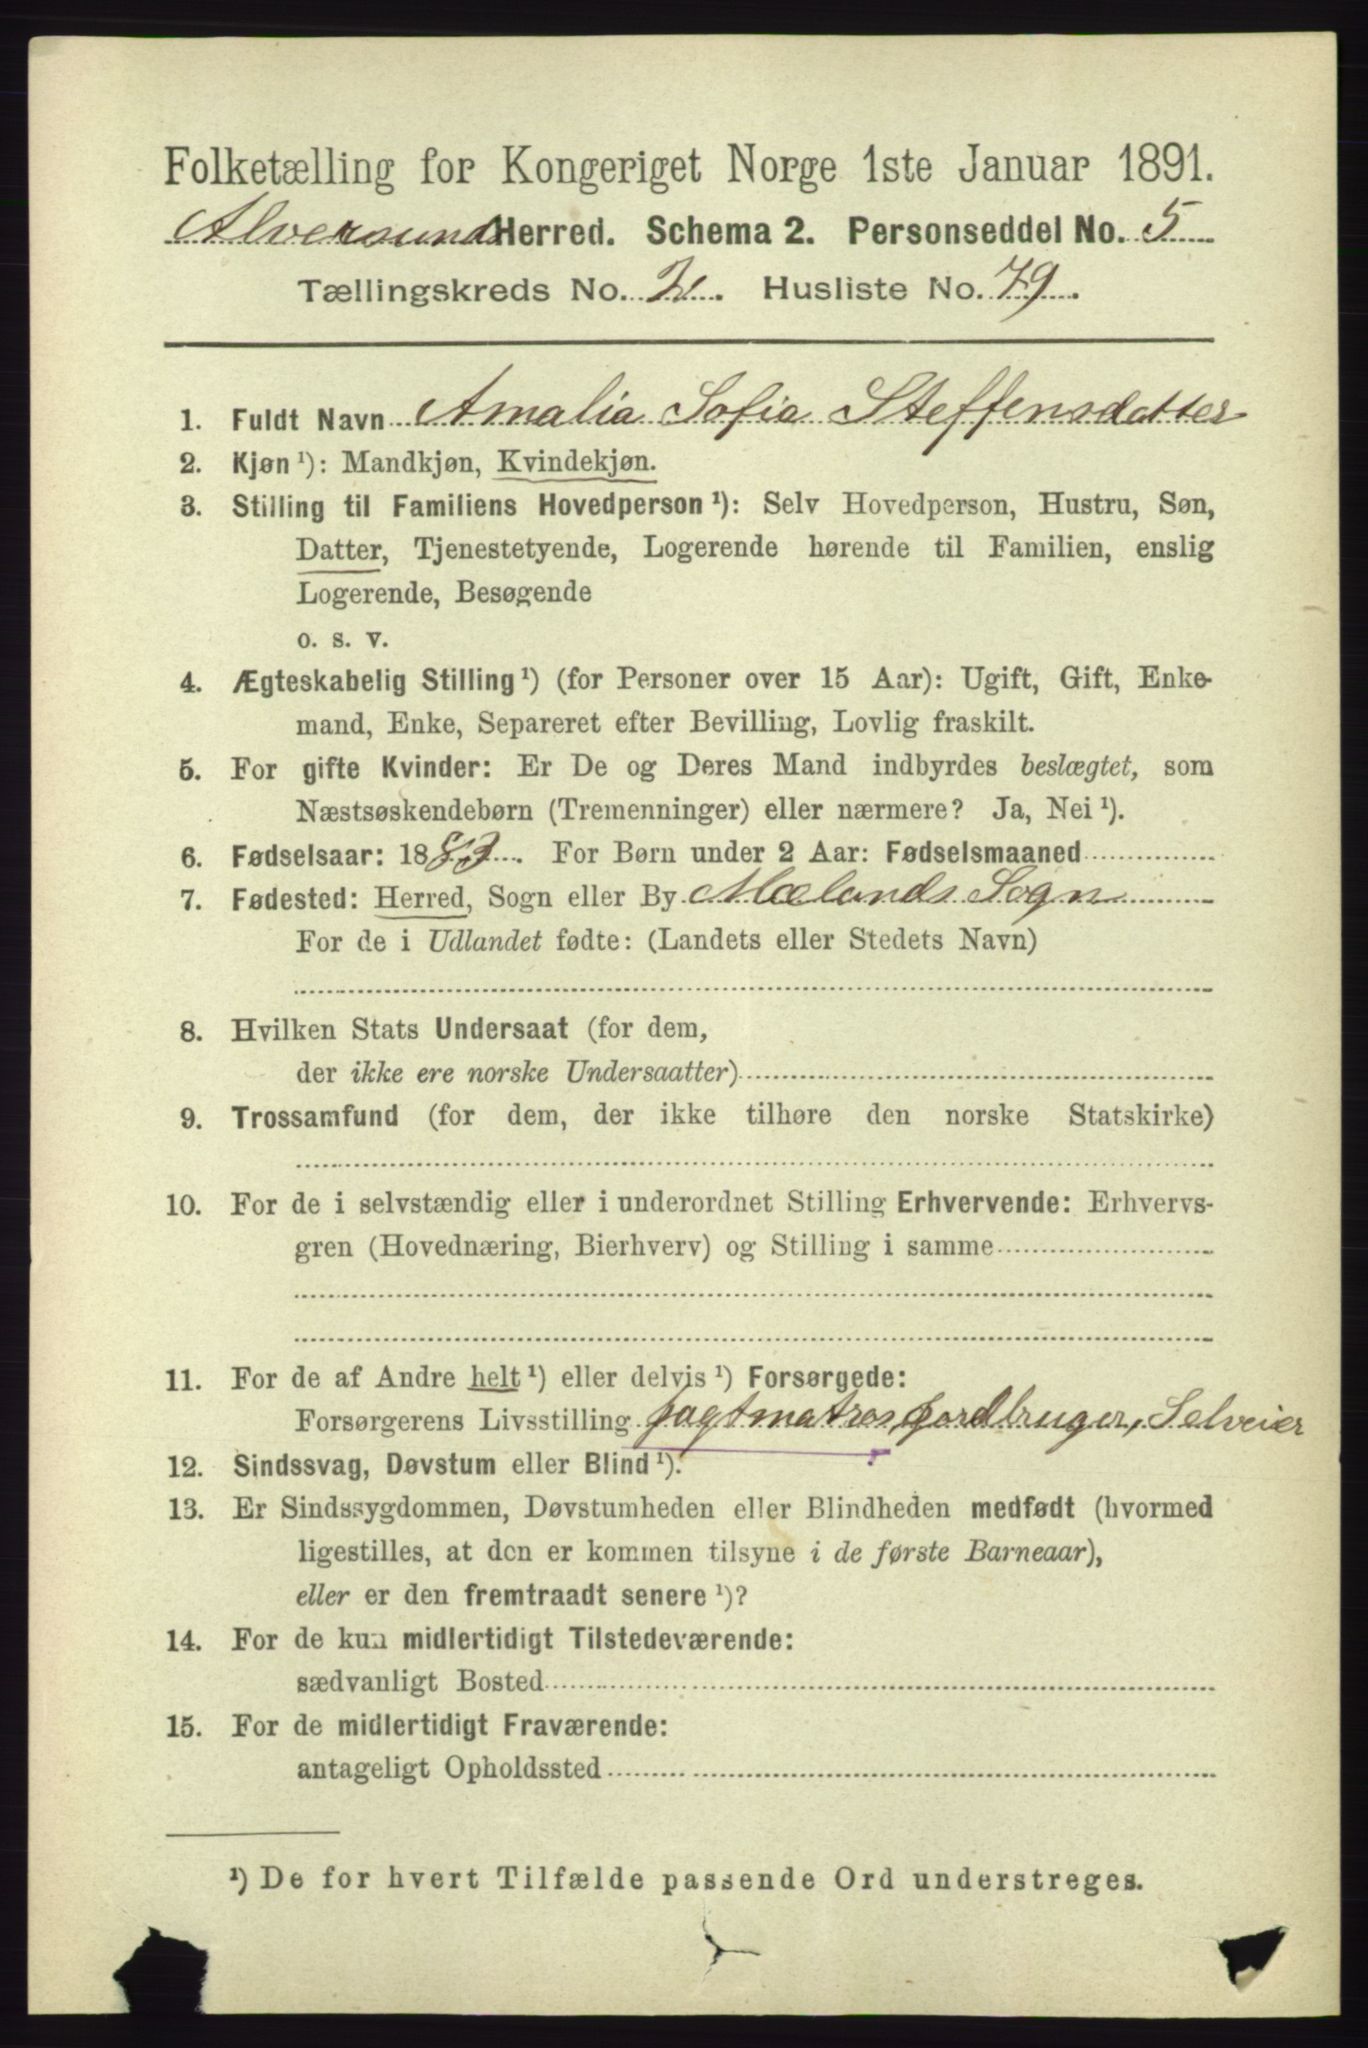 Folketælling for Kongeriget Norge 1ste Januar 1891.
Alversund Herred. Schema 2. Personseddel No. 5
Tællingskreds No. 2. Husliste No. 79.
1. Fuldt Navn Amalia Sofia Steffensdatter
2. Kjøn ¹): Mandkjøn, Kvindekjøn.
3. Stilling til Familiens Hovedperson ¹): Selv Hovedperson, Hustru, Søn,
Datter, Tjenestetyende, Logerende hørende til Familien, enslig
Logerende, Besøgende
o. s. v.
4. Ægteskabelig Stilling ¹) (for Personer over 15 Aar): Ugift, Gift, Enke-
mand, Enke, Separeret efter Bevilling, Lovlig fraskilt.
5. For gifte Kvinder: Er De og Deres Mand indbyrdes beslægtet, som
Næstsøskendebørn (Tremenninger) eller nærmere? Ja, Nei ¹).
6. Fødselsaar: 1883. For Børn under 2 Aar: Fødselsmaaned
7. Fødested: Herred, Sogn eller By Mælands Sogn
For de i Udlandet fødte: (Landets eller Stedets Navn)
8. Hvilken Stats Undersaat (for dem,
der ikke ere norske Undersaatter)
9. Trossamfund (for dem, der ikke tilhøre den norske Statskirke)
10. For de i selvstændig eller i underordnet Stilling Erhvervende: Erhvervs-
gren (Hovednæring, Bierhverv) og Stilling i samme
11. For de af Andre helt ¹) eller delvis ¹) Forsørgede:
Forsørgerens Livsstilling Jagtmatros, Jordbruger, Selveier
12. Sindssvag, Døvstum eller Blind ¹).
13. Er Sindssygdommen, Døvstumheden eller Blindheden medfødt (hvormed
ligestilles, at den er kommen tilsyne i de første Barneaar),
eller er den fremtraadt senere ¹)?
14. For de kun midlertidigt Tilstedeværende:
sædvanligt Bosted
15. For de midlertidigt Fraværende:
antageligt Opholdssted
¹) De for hvert Tilfælde passende Ord understreges.